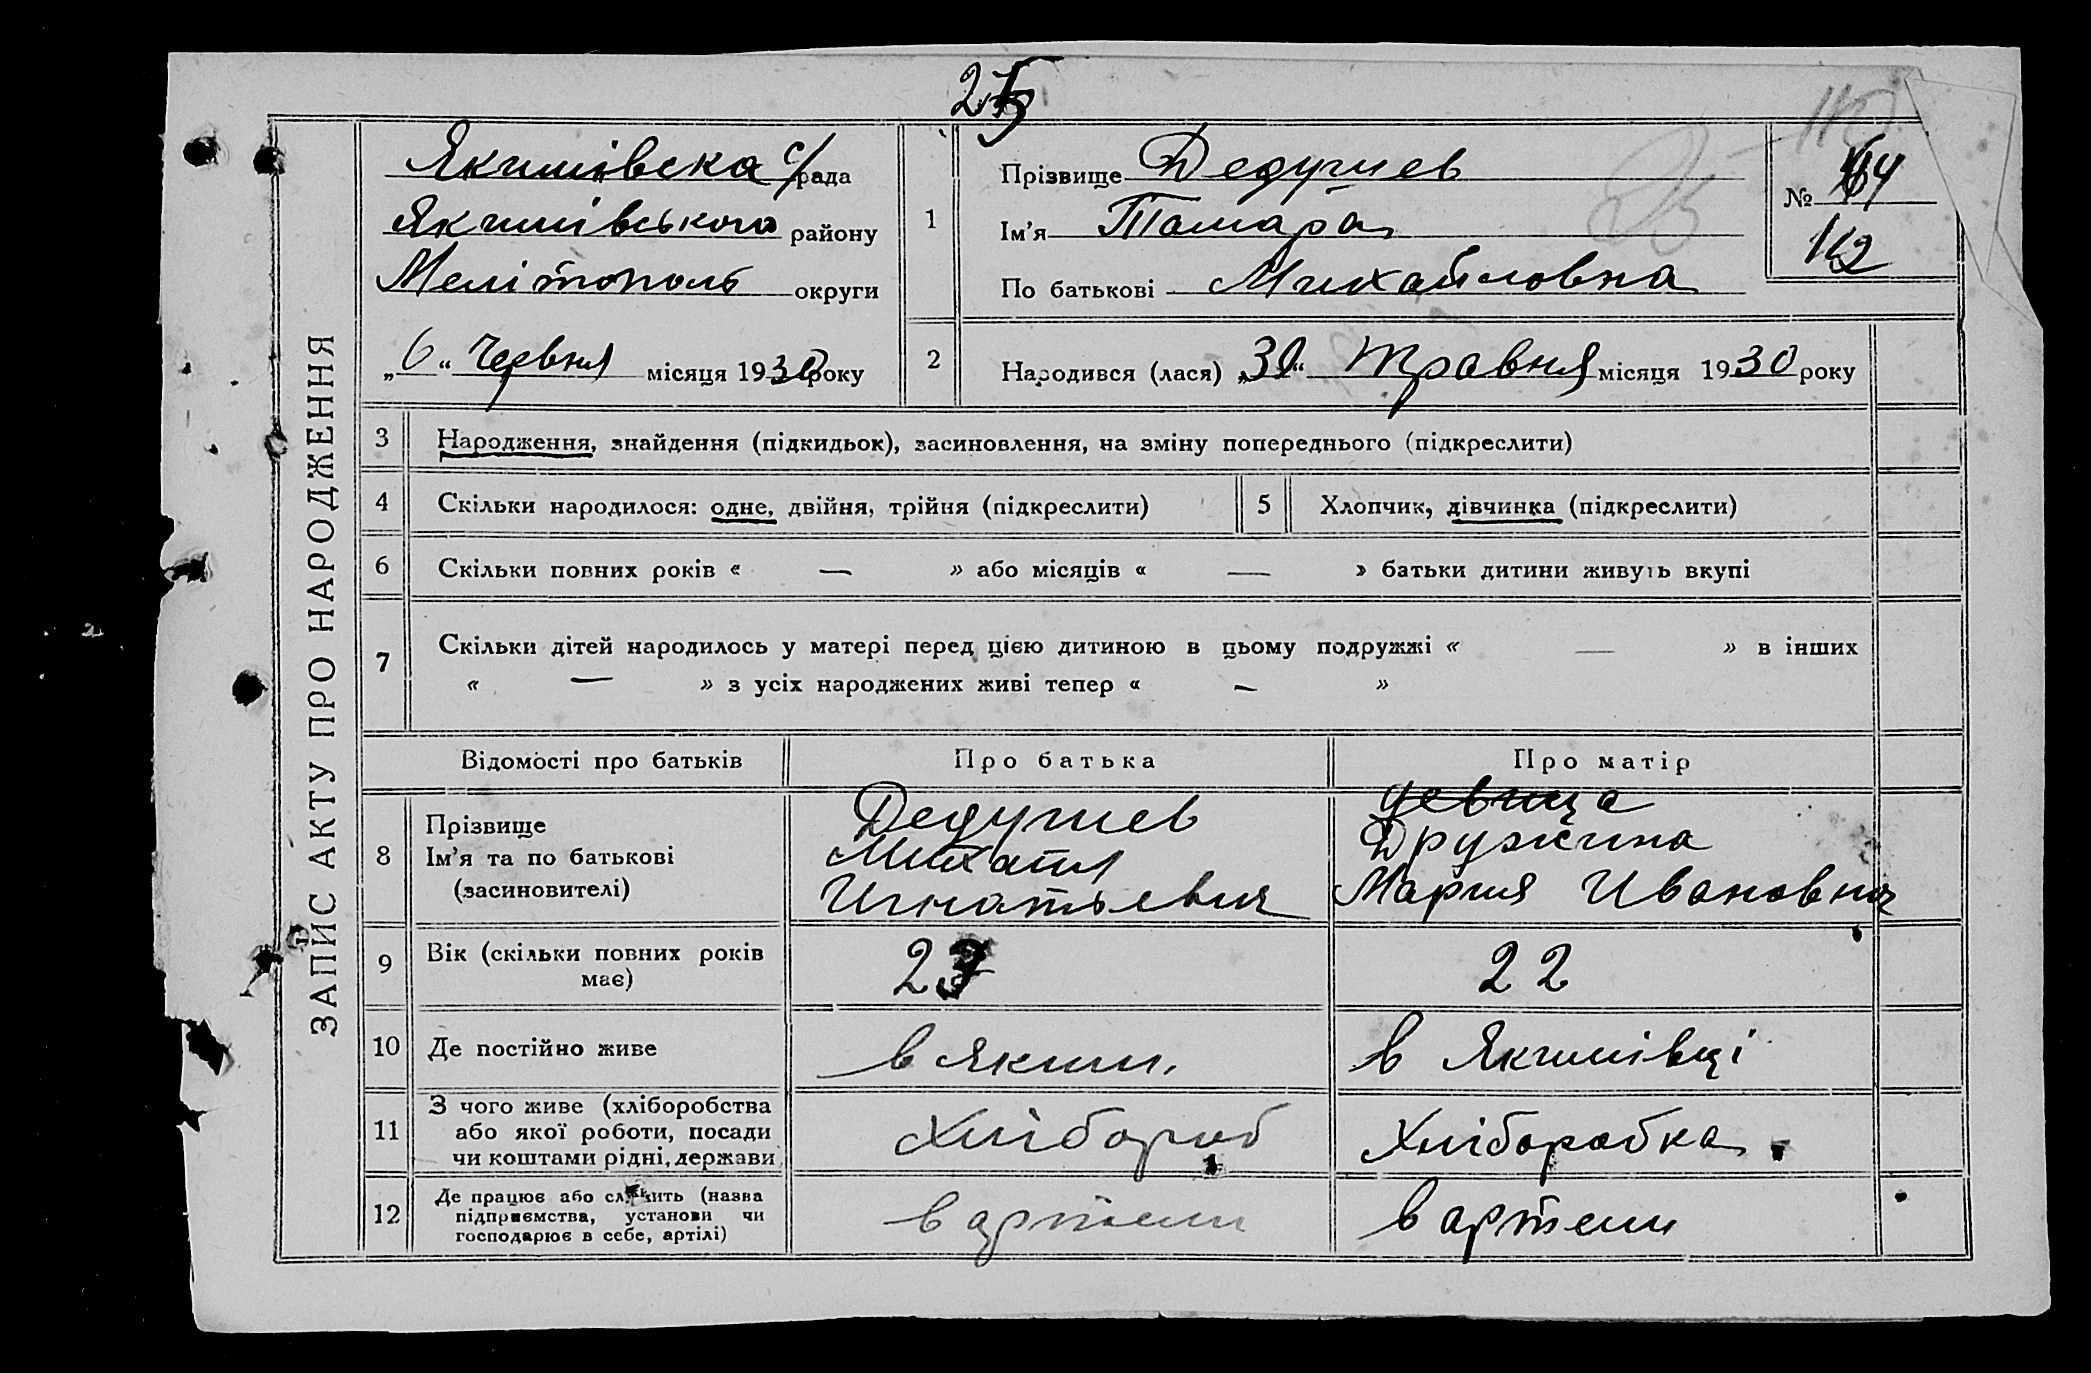 25
ЗАПИС АКТУ ПРО НАРОДЖЕННЯ
Якимівска с/рада
Якимівського району
Мелітополь округи
„6“ Червня місяця 1930 року
1
Прізвище Дедушев
Ім'я Тамара
По батькові Михайловна
№ 164
112
2
Народився (лася) „30“ Травня місяця 1930 року
3 Народження, знайдення (підкидьок), засиновлення, на зміну попереднього (підкреслити)
4 Скільки народилося: одне, двійня, трійня (підкреслити) 5 Хлопчик, дівчинка (підкреслити)
6 Скільки повних років « — » або місяців « — » батьки дитини живуть вкупі
7 Скільки дітей народилось у матері перед цією дитиною в цьому подружжі « — » в інших
« — » з усіх народжених живі тепер « — »
Відомості про батьків Про батька Про матір
8 Прізвище
Ім'я та по батькові
(засиновителі)
Дедушев
Михаил
Игнатьевич
девица
Дружина
Мария Ивановна
9 Вік (скільки повних років
має)
23
22
10 Де постійно живе в Яким. в Якимівці
11 З чого живе (хліборобства
або якої роботи, посади
чи коштами рідні, держави
Хлібороб Хліборобка
12 Де працює або служить (назва
підприємства, установи чи
господарює в себе, артілі)
в артели в артели